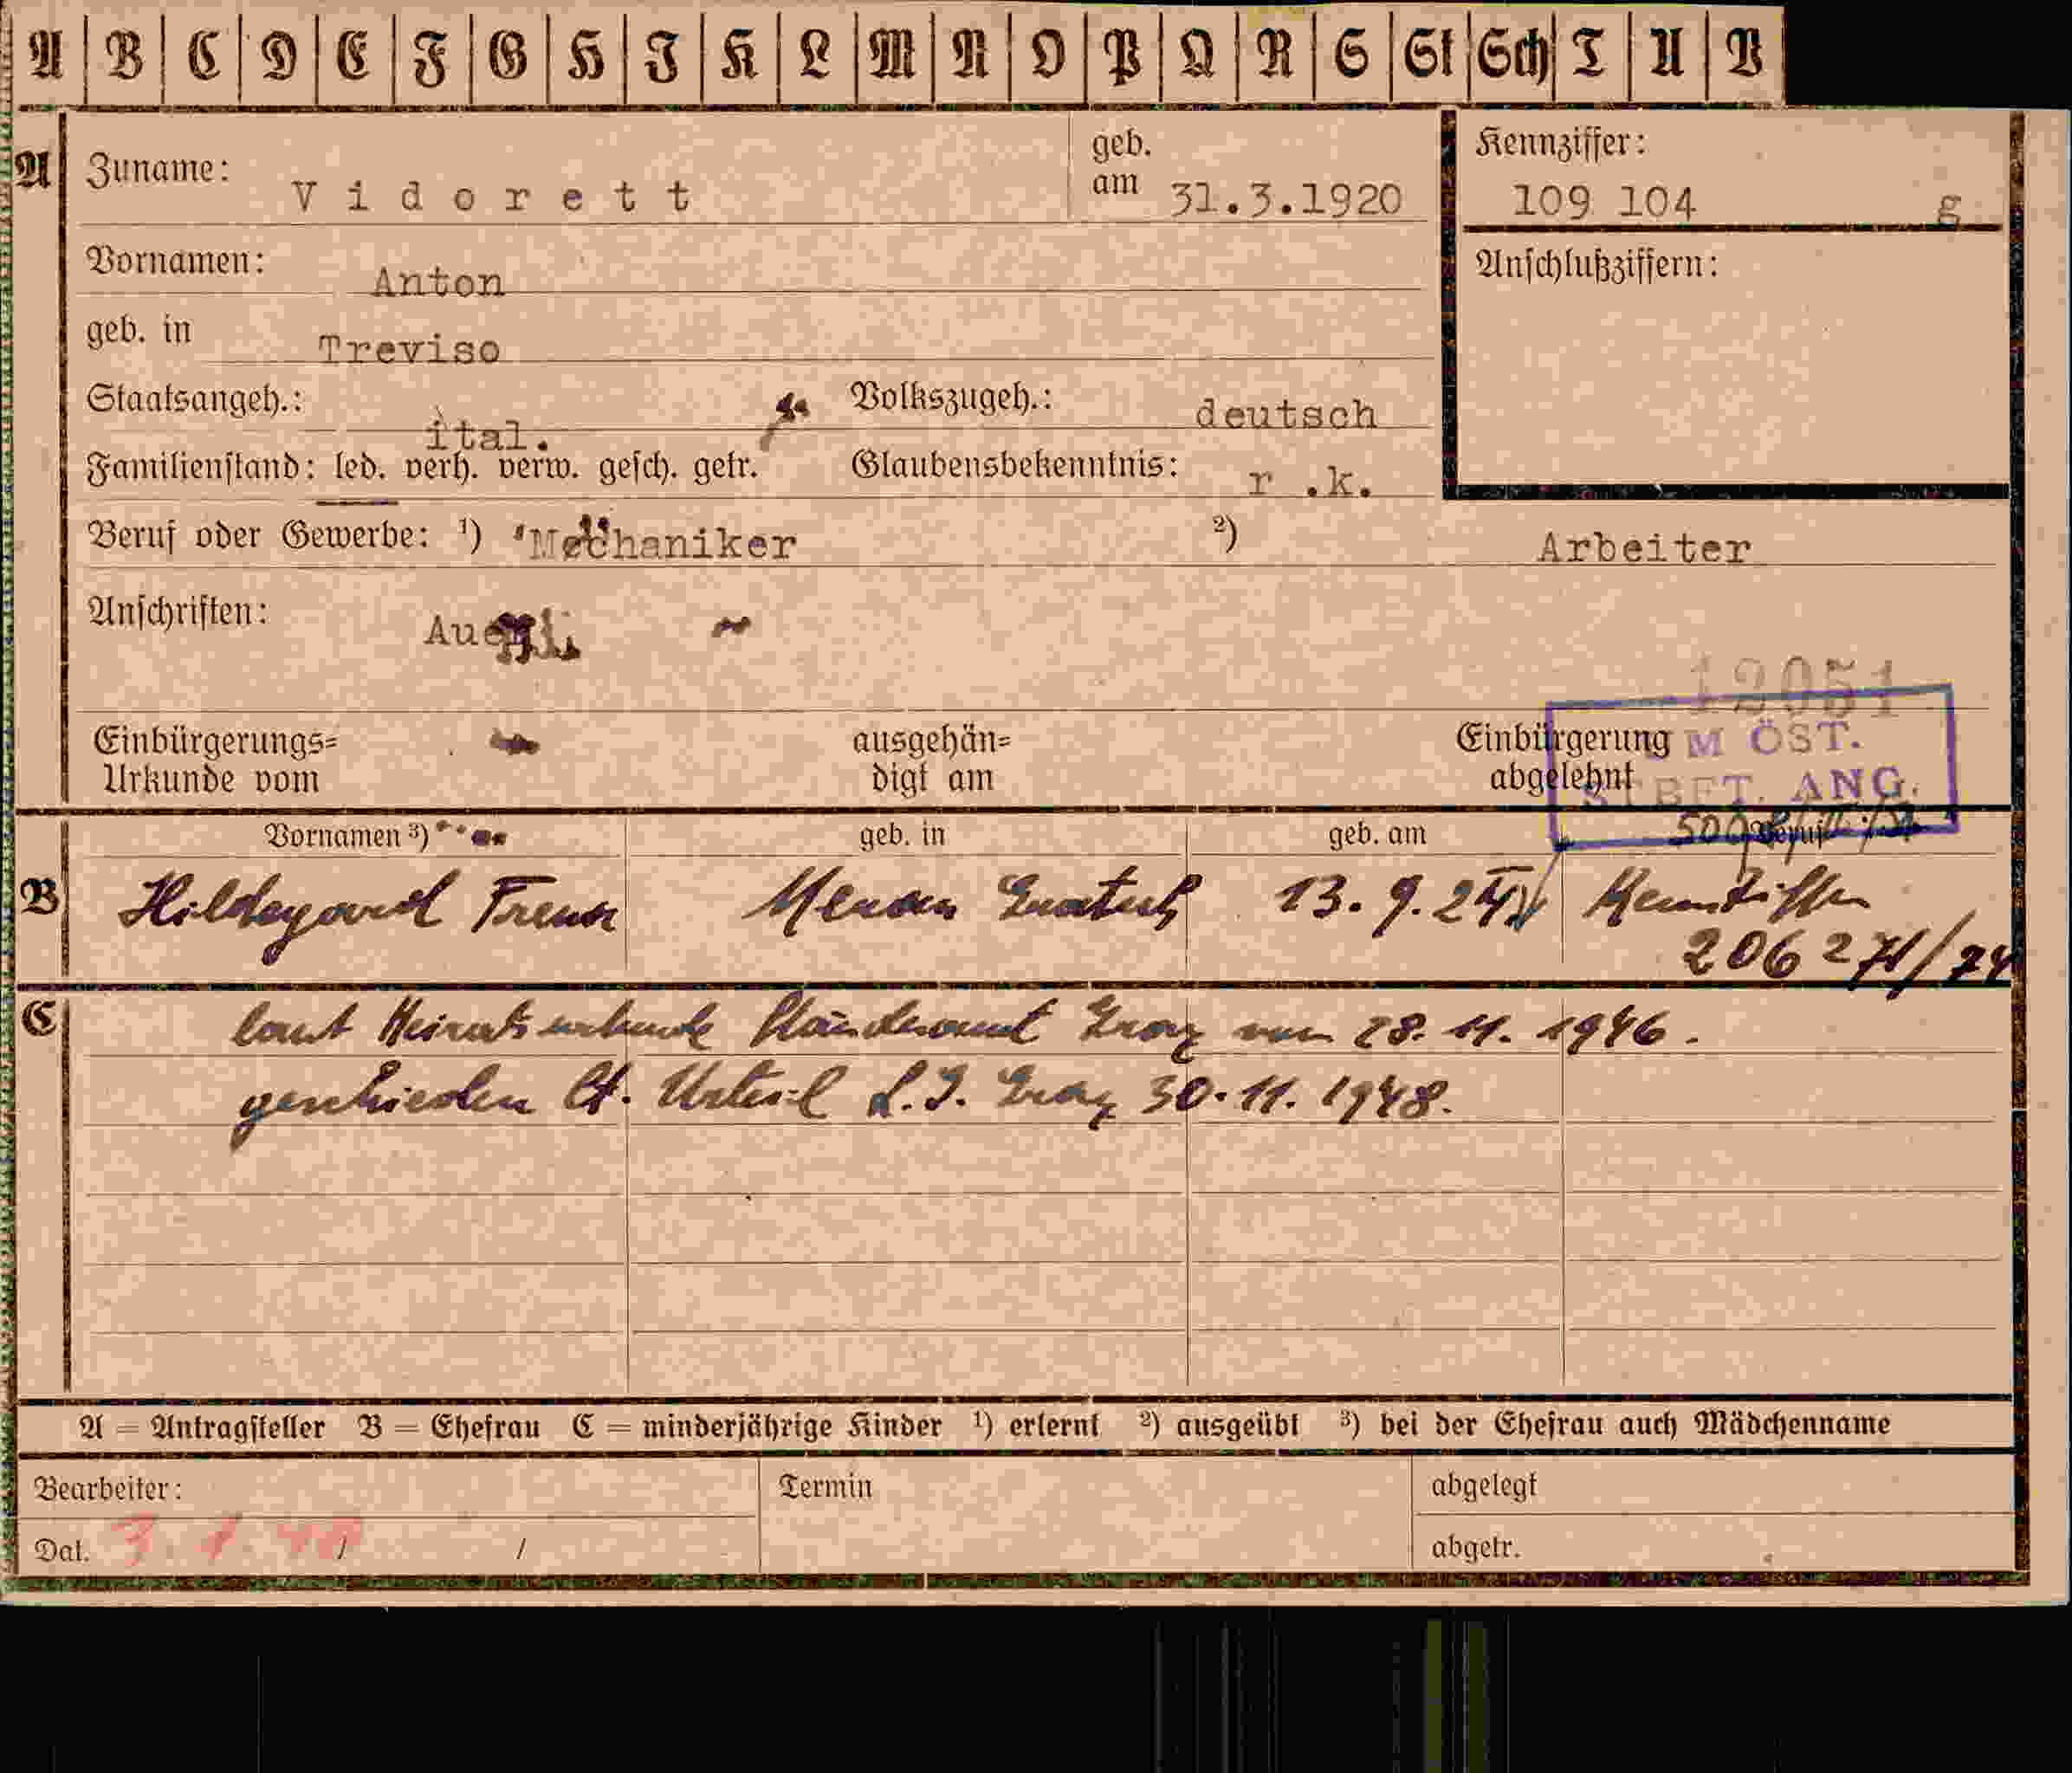 A B C D E F G H I K L M N O P Q R S St Sch T U V
A Zuname: Vidorett geb. am 31.3.1920 Kennziffer: 109 104 g
Vornamen: Anton Anschlußziffern:
geb. in Treviso
Staatsangeh.: ital. Volkszugeh.: deutsch
Familienstand: led. verh. verw. gesch. getr. Glaubensbekenntnis: r.k.
Beruf oder Gewerbe: ¹) Mechaniker ²) Arbeiter
Anschriften:
12051
Einbürgerungs= ausgehän= Einbürgerung
Urkunde vom digt am abgelehnt
M ÖST.
ANG.
Vornamen ³) geb. in geb. am Beruf
B Hildegard Meran Gratsch 13.9.24 Kennziffer
206 271/74
C laut Heiratsurkunde Standesamt Graz vom 28.11.1946.
geschieden lt. Urteil L.G. Graz 30.11.1948.
A = Antragsteller B = Ehefrau C = minderjährige Kinder ¹) erlernt ²) ausgeübt ³) bei der Ehefrau auch Mädchenname
Bearbeiter: Termin abgelegt
Dat. / / abgetr.